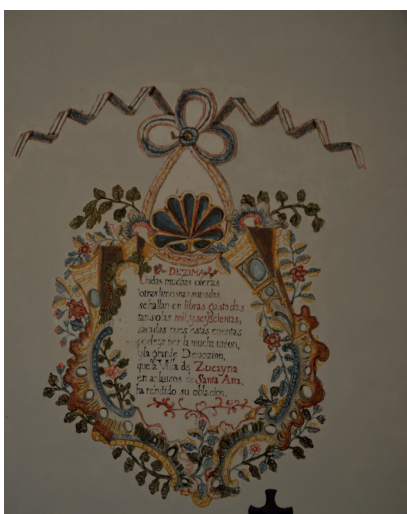 DEZIMA
Unidas muchas ofertas
otras limosnas
se hallan en libras gastadas
tan solas mil, y seyscientas,
sacadas pues estas cuentas
podeys ver la mucha union,
y la grande Devozion,
que la Villa de Zucayna
en a de Santa Ana,
ha rendido su oblacion.